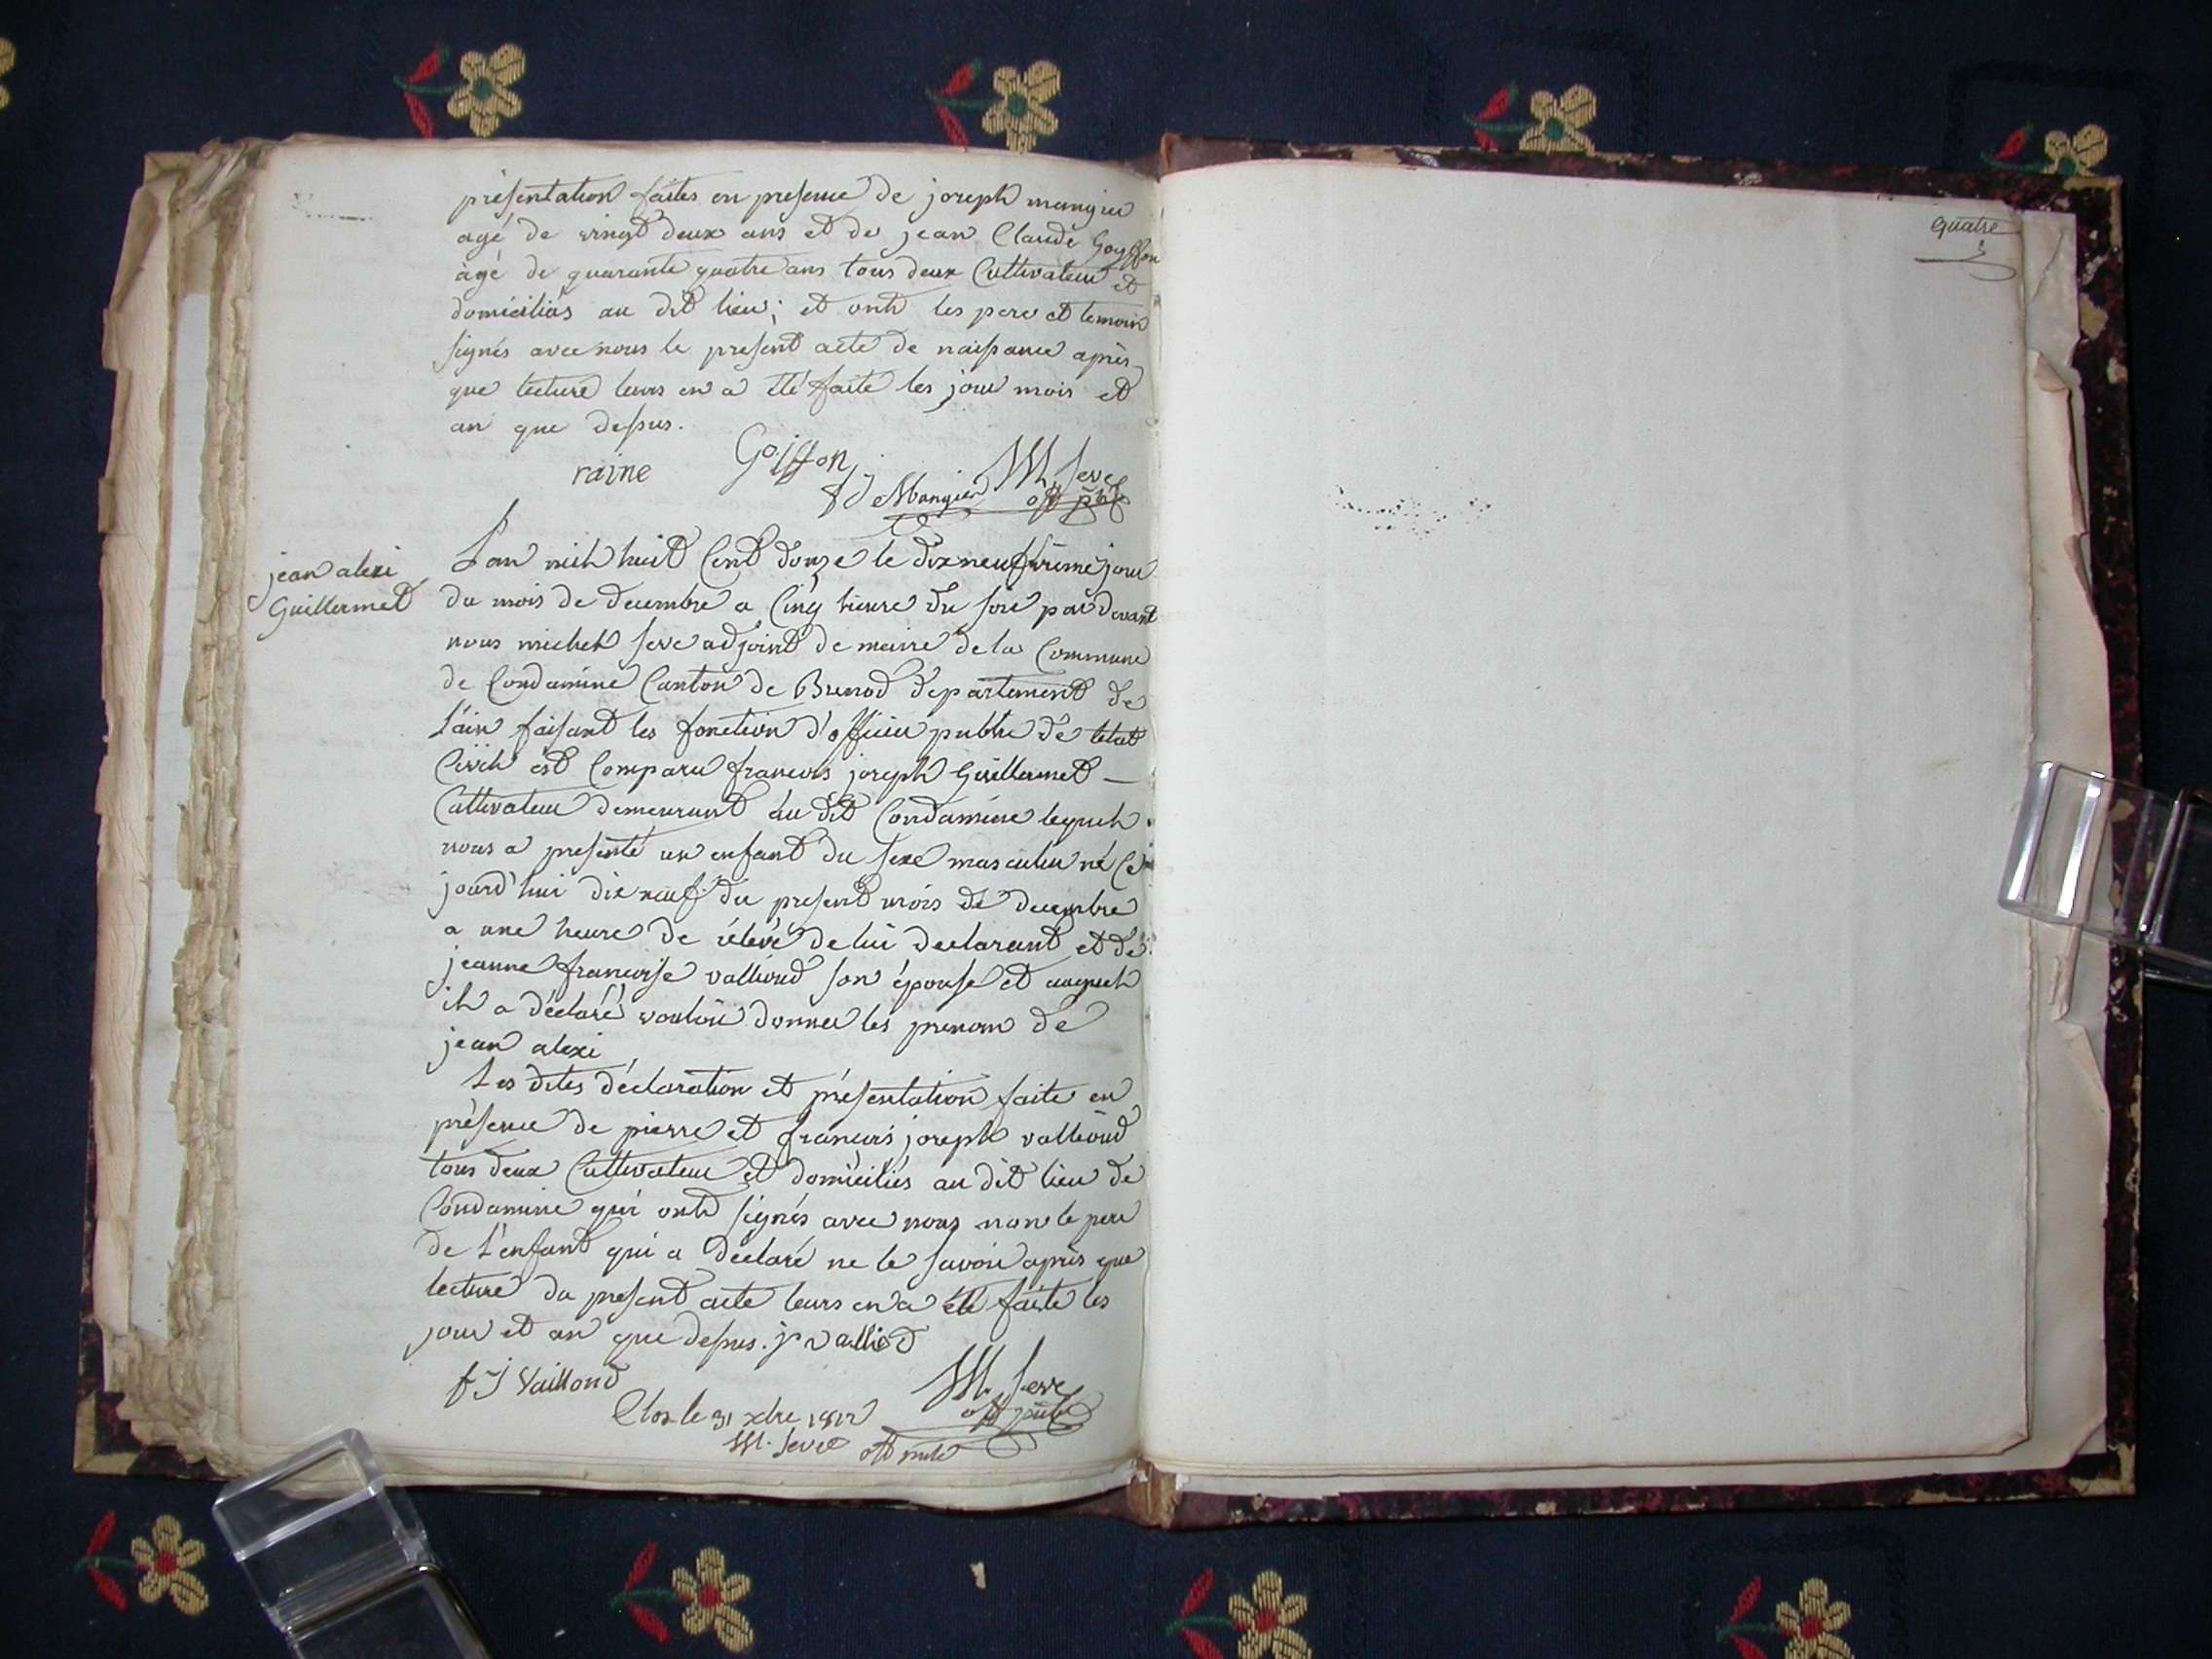 présentation faites en presence de joseph mangier
agé de vingt deux ans et de jean Claude Goyffon
àgé de quarante quatre ans tous deux Cultivateur et
domiciliés au dit lieu; et onts les pere et temoin
signés avec nous le present acte de naissance après
que lecture leurs en a été faite les jour mois et
an que dessus.
raine Goiffon M. Seve
f J Mangier off pub
L'an mih huit Cent douze le dixneufvieme jour
jean alexi
Guillermet
du mois de decembre a Cinq heure du soir par devant
nous micheh seve adjoint de maire de la Commune
de Condamine Canton de Brenod departement de
L'ain faisant les fonction d'officier public de letat
Civih est Comparu francois joseph Guillermet —
Cultivateur demeurant au dit Condamine lequeh
nous a presenté un enfant du sexe masculin né Ce
jourd'hui dix neuf du present mois de decembre
a une heure de rélevé de lui declarant et de
jeanne francoise vallioud son épouse et auqueh
ih a déclaré vouloir donner les prenom de
jean alexi
Les dites déclaration et présentation faite en
présence de pierre et francois joseph vallioud
tous deux Cultivateur et domiciliés au dit lieu de
Condamine qui onts signés avec nous non le pere
de L'enfant qui a declaré ne le savoir après que
lecture du present acte leurs en a été faite les
jour et an que dessus. p valliod
f J Vailloud M. Seve
off pub
Clos le 31 xbre 1812
M. Seve off pub
quatre